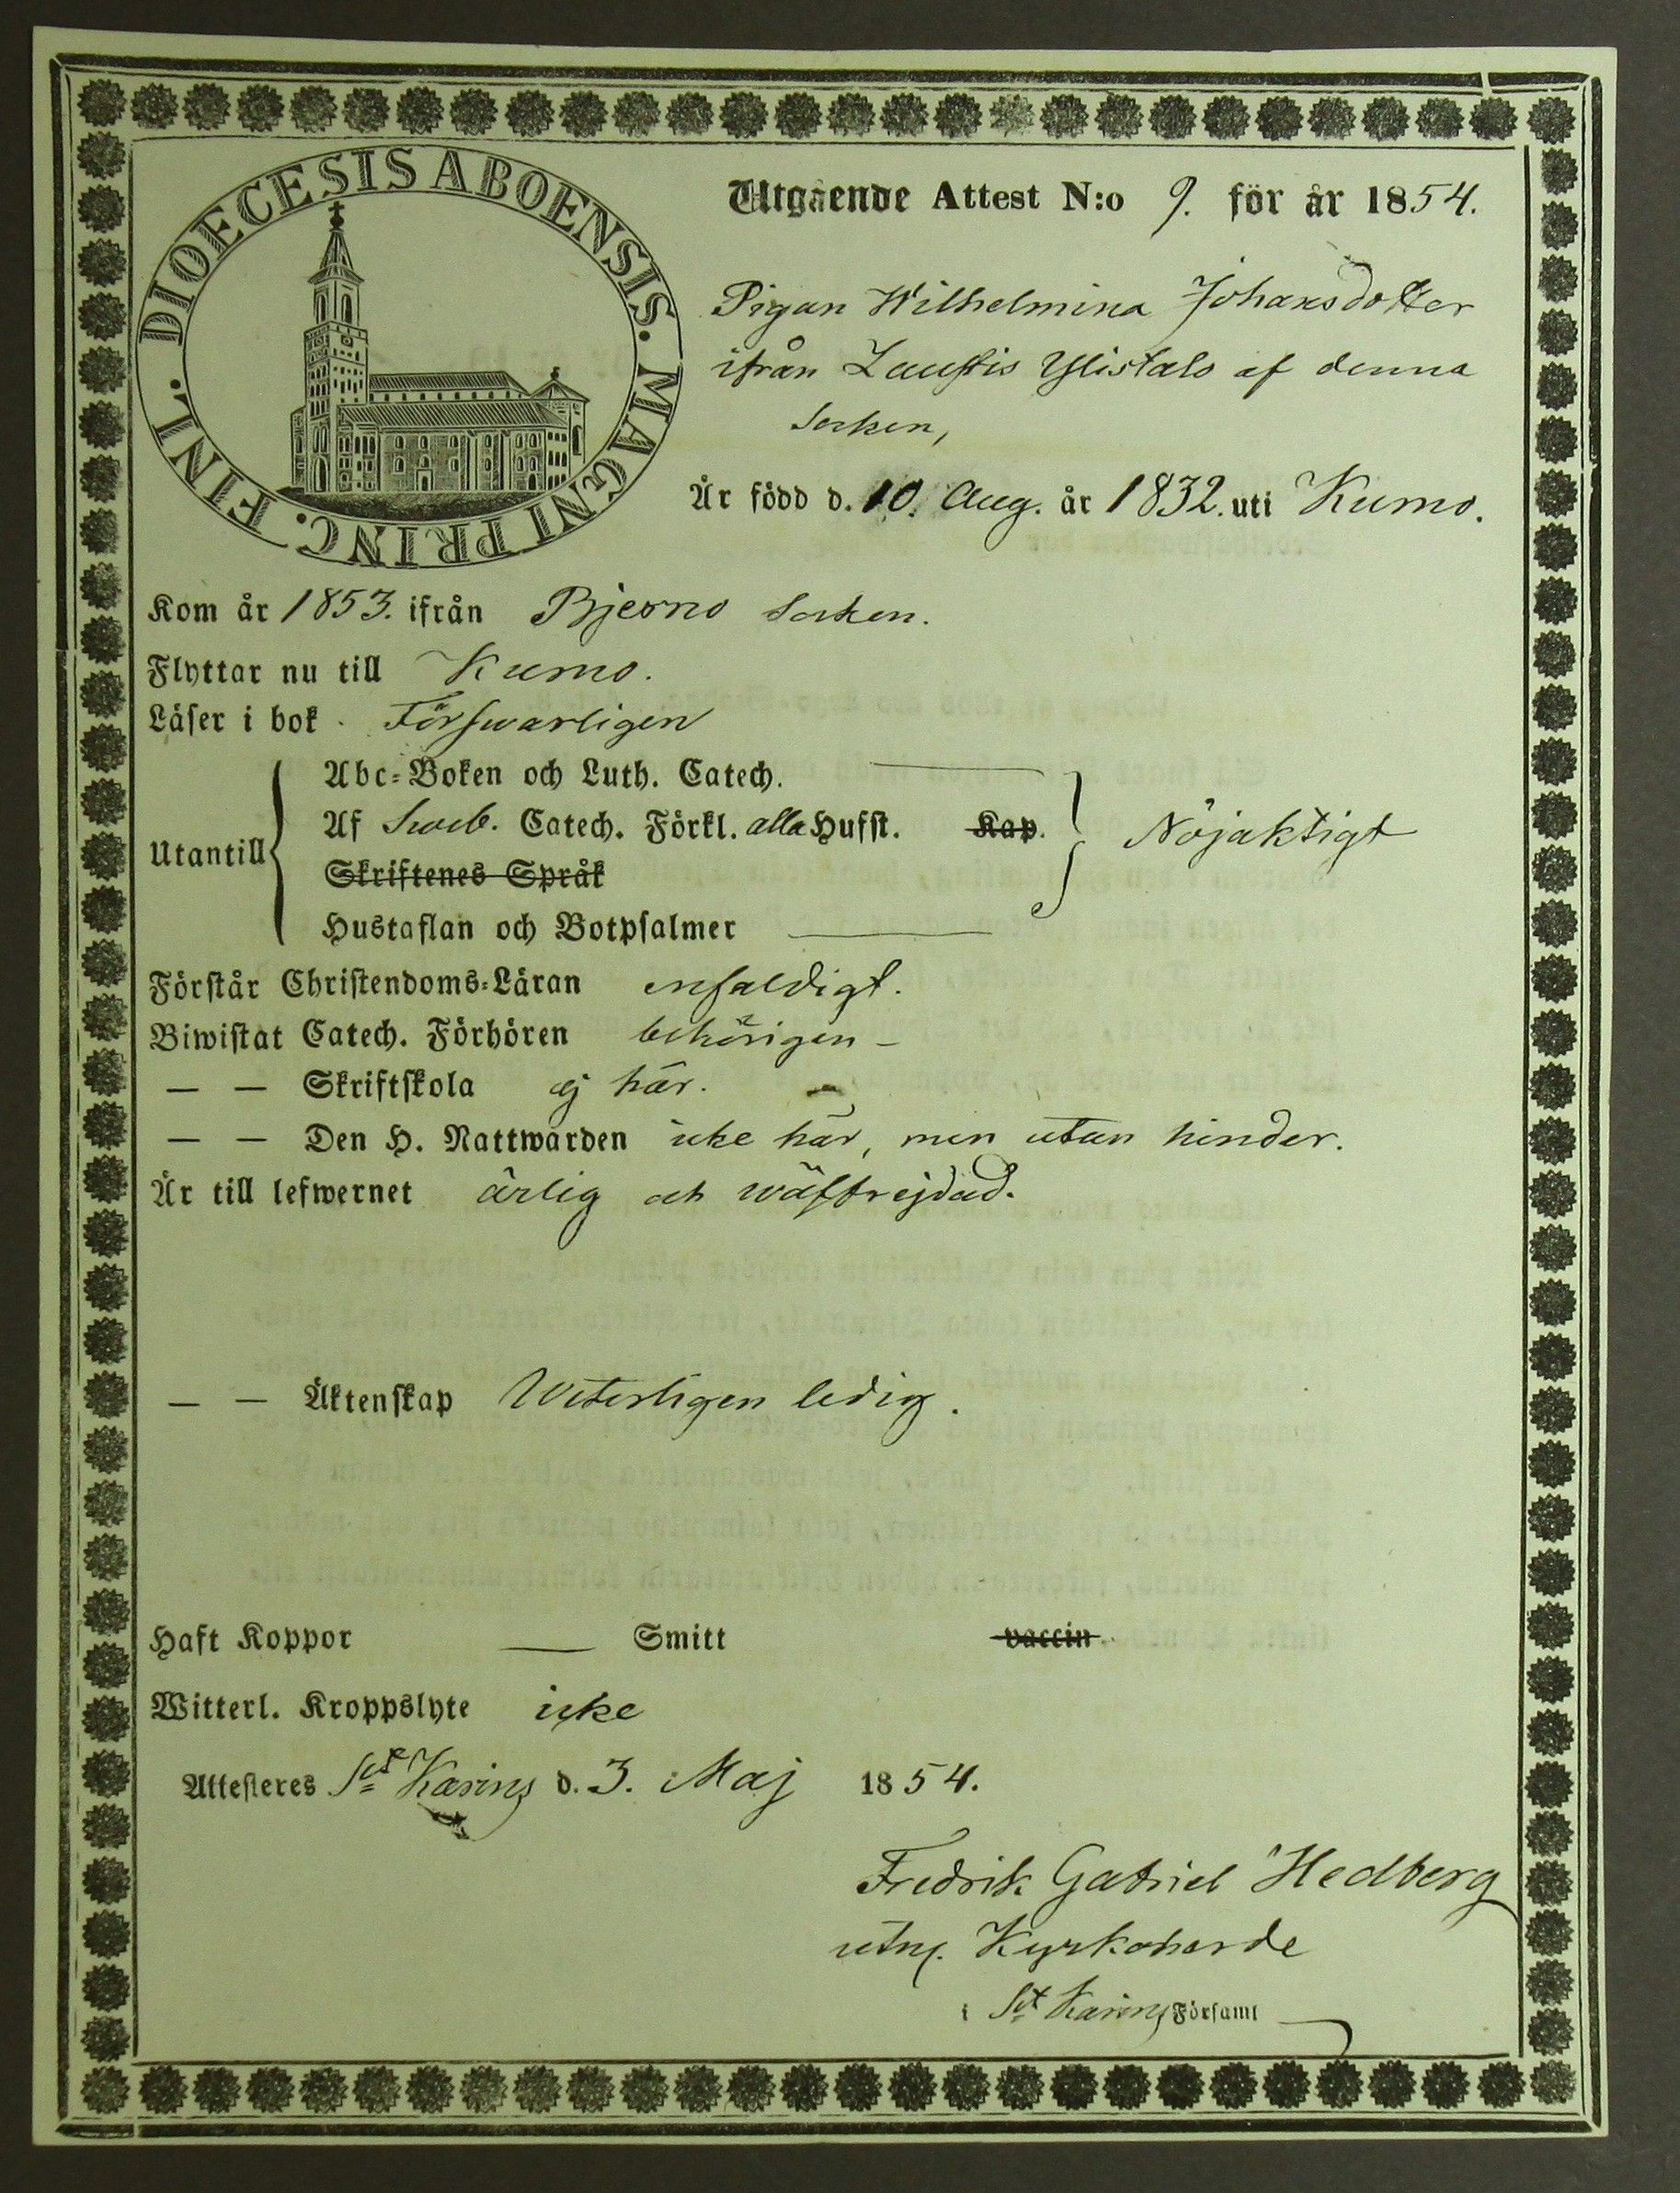 DIOECESIS ABOENSIS. MAGNI PRINC. FINL.
Utgående Attest N:o 9. för år 1854.
Pigan Wilhelmina Johansdotter
ifrån Laustis Ylistalo af denna
Socken,
Är född d. 10. Aug. år 1832. uti Kumo.
Kom år 1853. ifrån Bjerno Socken.
Flyttar nu till Kumo.
Läser i bok Försvarligen
Abc-Boken och Luth. Catech.
Af Sweb. Catech. Förkl. alla Hufst. Kap.
Utantill Nöjaktigt
Skriftenes Språk
Hustaflan och Botpsalmer
Förstår Christendoms-Läran enfaldigt.
Biwistat Catech. Förhören behörigen –
— — Skriftskola ej här.
— — Den H. Nattwarden icke här, men utan hinder.
Är till lefwernet ärlig och wälfrejdad.
— — Äktenskap Weterligen ledig.
Haft Koppor — Smitt vaccin
Witterl. Kroppslyte icke
Attesteres Sct Karins d. 3. Maj 1854.
Fredrik Gabriel Hedberg
utn. Kyrkoherde
i Sct Karins Församl